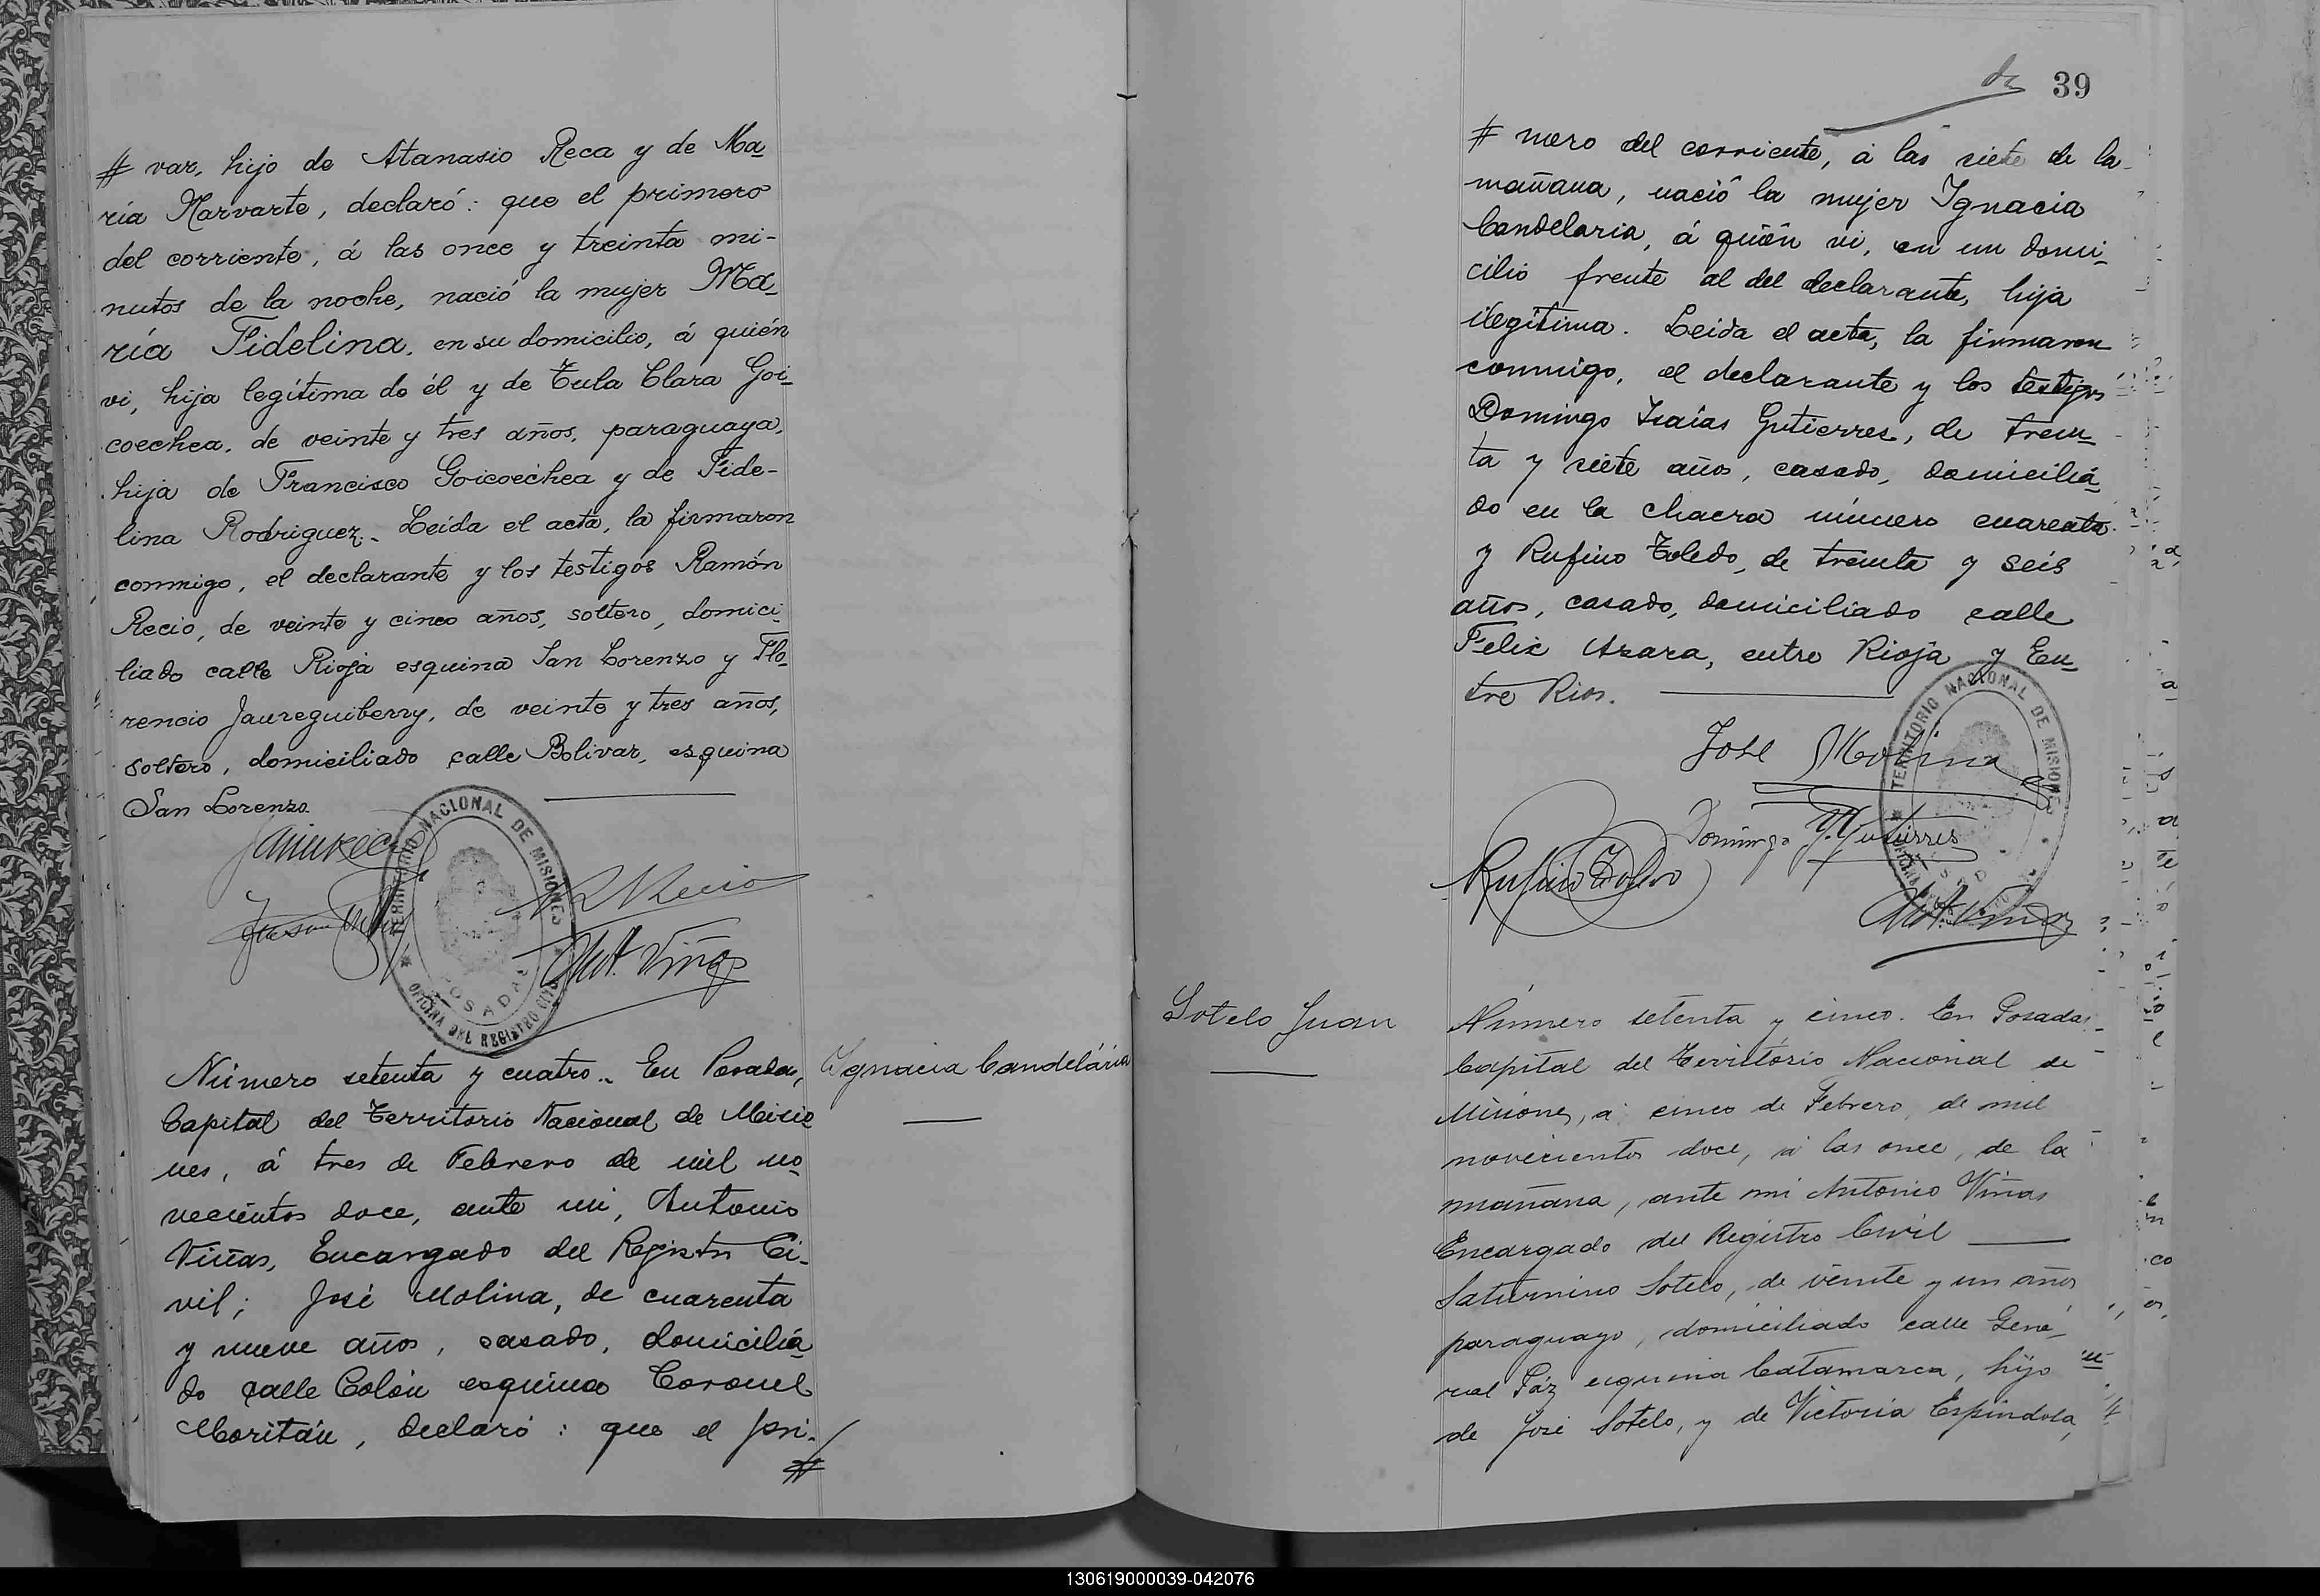 # var, hijo de Atanasio Reca y de Ma-
ría Narvarte, declaró: que el primero
del corriente, á las once y treinta mi-
nutos de la noche, nació la mujer Ma-
ría Fidelina, en su domicilio, á quién
vi, hija legítima de él y de Tula Clara Goi-
coechea, de veinte y tres años, paraguaya,
hija de Francisco Goicoechea y de Fide-
lina Rodriguez. Leida el acta, la firmaron
conmigo, el declarante y los testigos Ramón
Recio, de veinte y cinco años, soltero, domici-
liado calle Rioja esquina San Lorenzo y Flo-
rencio Jaureguiberry, de veinte y tres años,
soltero, domiciliado calle Bolivar, esquina
San Lorenzo.
R Recio
Ant. Viñas
TERRITORIO NACIONAL DE MISIONES
POSADAS
OFICINA DEL REGISTRO CIVIL
Ignacia Candelária
Número setenta y cuatro. En Posadas,
Capital del Territorio Nacional de Misio
nes, á tres de Febrero de mil no-
vecientos doce, ante mi, Antonio
Viñas, Encargado del Registro Ci-
vil; José Molina, de cuarenta
y nueve años, casado, domicilia-
do calle Colón esquina Coronel
Moritán, declaró: que el pri-
#
39
# mero del corriente, á las siete de la
mañana, nació la mujer Ignacia
Candelaria, á quién vi, en un domi-
cilio frente al del declarante, hija
ilegítima. Leida el acta, la firmaron
conmigo, el declarante y los testigos
Domingo Isaías Gutierrez, de trein-
ta y siete años, casado, domicilia-
do en la chacra número cuarenta
y Rufino Toledo, de treinta y seis
años, casado, domiciliado calle
Felix Azara, entre Rioja y En-
tre Rios.
José Molina
Domingo Y. Gutierres
Rufino Toledo
Ant. Viñas
TERRITORIO NACIONAL DE MISIONES
Sotelo Juan
Número setenta y cinco. En Posadas
Capital del Territorio Nacional de
Misiones, a cinco de Febrero, de mil
novecientos doce, á las once, de la
mañana, ante mi Antonio Viñas
Encargado del Registro Civil
Saturnino Sotelo, de veinte y un años
paraguayo, domiciliado calle Gene-
ral Páz esquina Catamarca, hijo
de José Sotelo, y de Victoria Espindola,
130619000039-042076